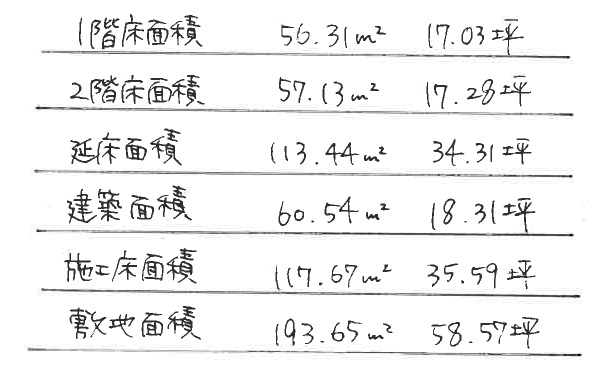 1階床面積 56.31m² 17.03坪
2階床面積 57.13m² 17.28坪
延床面積 113.44m² 34.31坪
建築面積 60.54m² 18.31坪
施工床面積 117.67m² 35.59坪
敷地面積 193.65m² 58.57坪